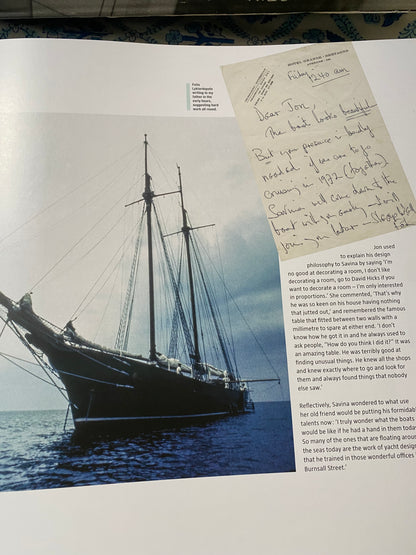 Fritz
writing to my
father in the
early hours,
suggesting hard
work all round.
HOTEL GRANDE-BRETAGNE
Friday
1240 am
Dear Jon,
The boat looks beautiful
But your presence is badly
needed if we are to go
cruising in 1972 (together)
Savina will come down to the
boat with you and I will
join you later.
Jon used
to explain his design
philosophy to Savina by saying 'I'm
no good at decorating a room, I don't like
decorating a room, go to David Hicks if you
want to decorate a room – I'm only interested
in proportions.' She commented, 'That's why
he was so keen on his house having nothing
that jutted out,' and remembered the famous
table that fitted between two walls with a
millimetre to spare at either end. 'I don't
know how he got it in and he always used to
ask people, "How do you think I did it?" It was
an amazing table. He was terribly good at
finding unusual things. He knew all the shops
and knew exactly where to go and look for
them and always found things that nobody
else saw.'
Reflectively, Savina wondered to what use
her old friend would be putting his formidable
talents now: 'I truly wonder what the boats
would be like if he had a hand in them today.
So many of the ones that are floating around
the seas today are the work of yacht design
that he trained in those wonderful offices
Burnsall Street.'